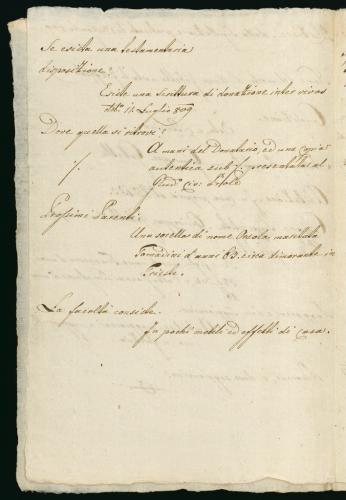 Se esista una testamentaria
disposizione?
Esiste una Scrittura di donazione inter vivos
11 Luglio 809
Dove quella si trovi?
A mani del Donatario, ed una Copia
autentica sub presentata al
Giud.º civ:
Prossimi Parenti
Una sorella di nome Orsola maritata
Tomadini d'anni 63. circa dimorante in
Trieste.
La facoltà consiste.
In pochi mobili ed effetti di Casa.